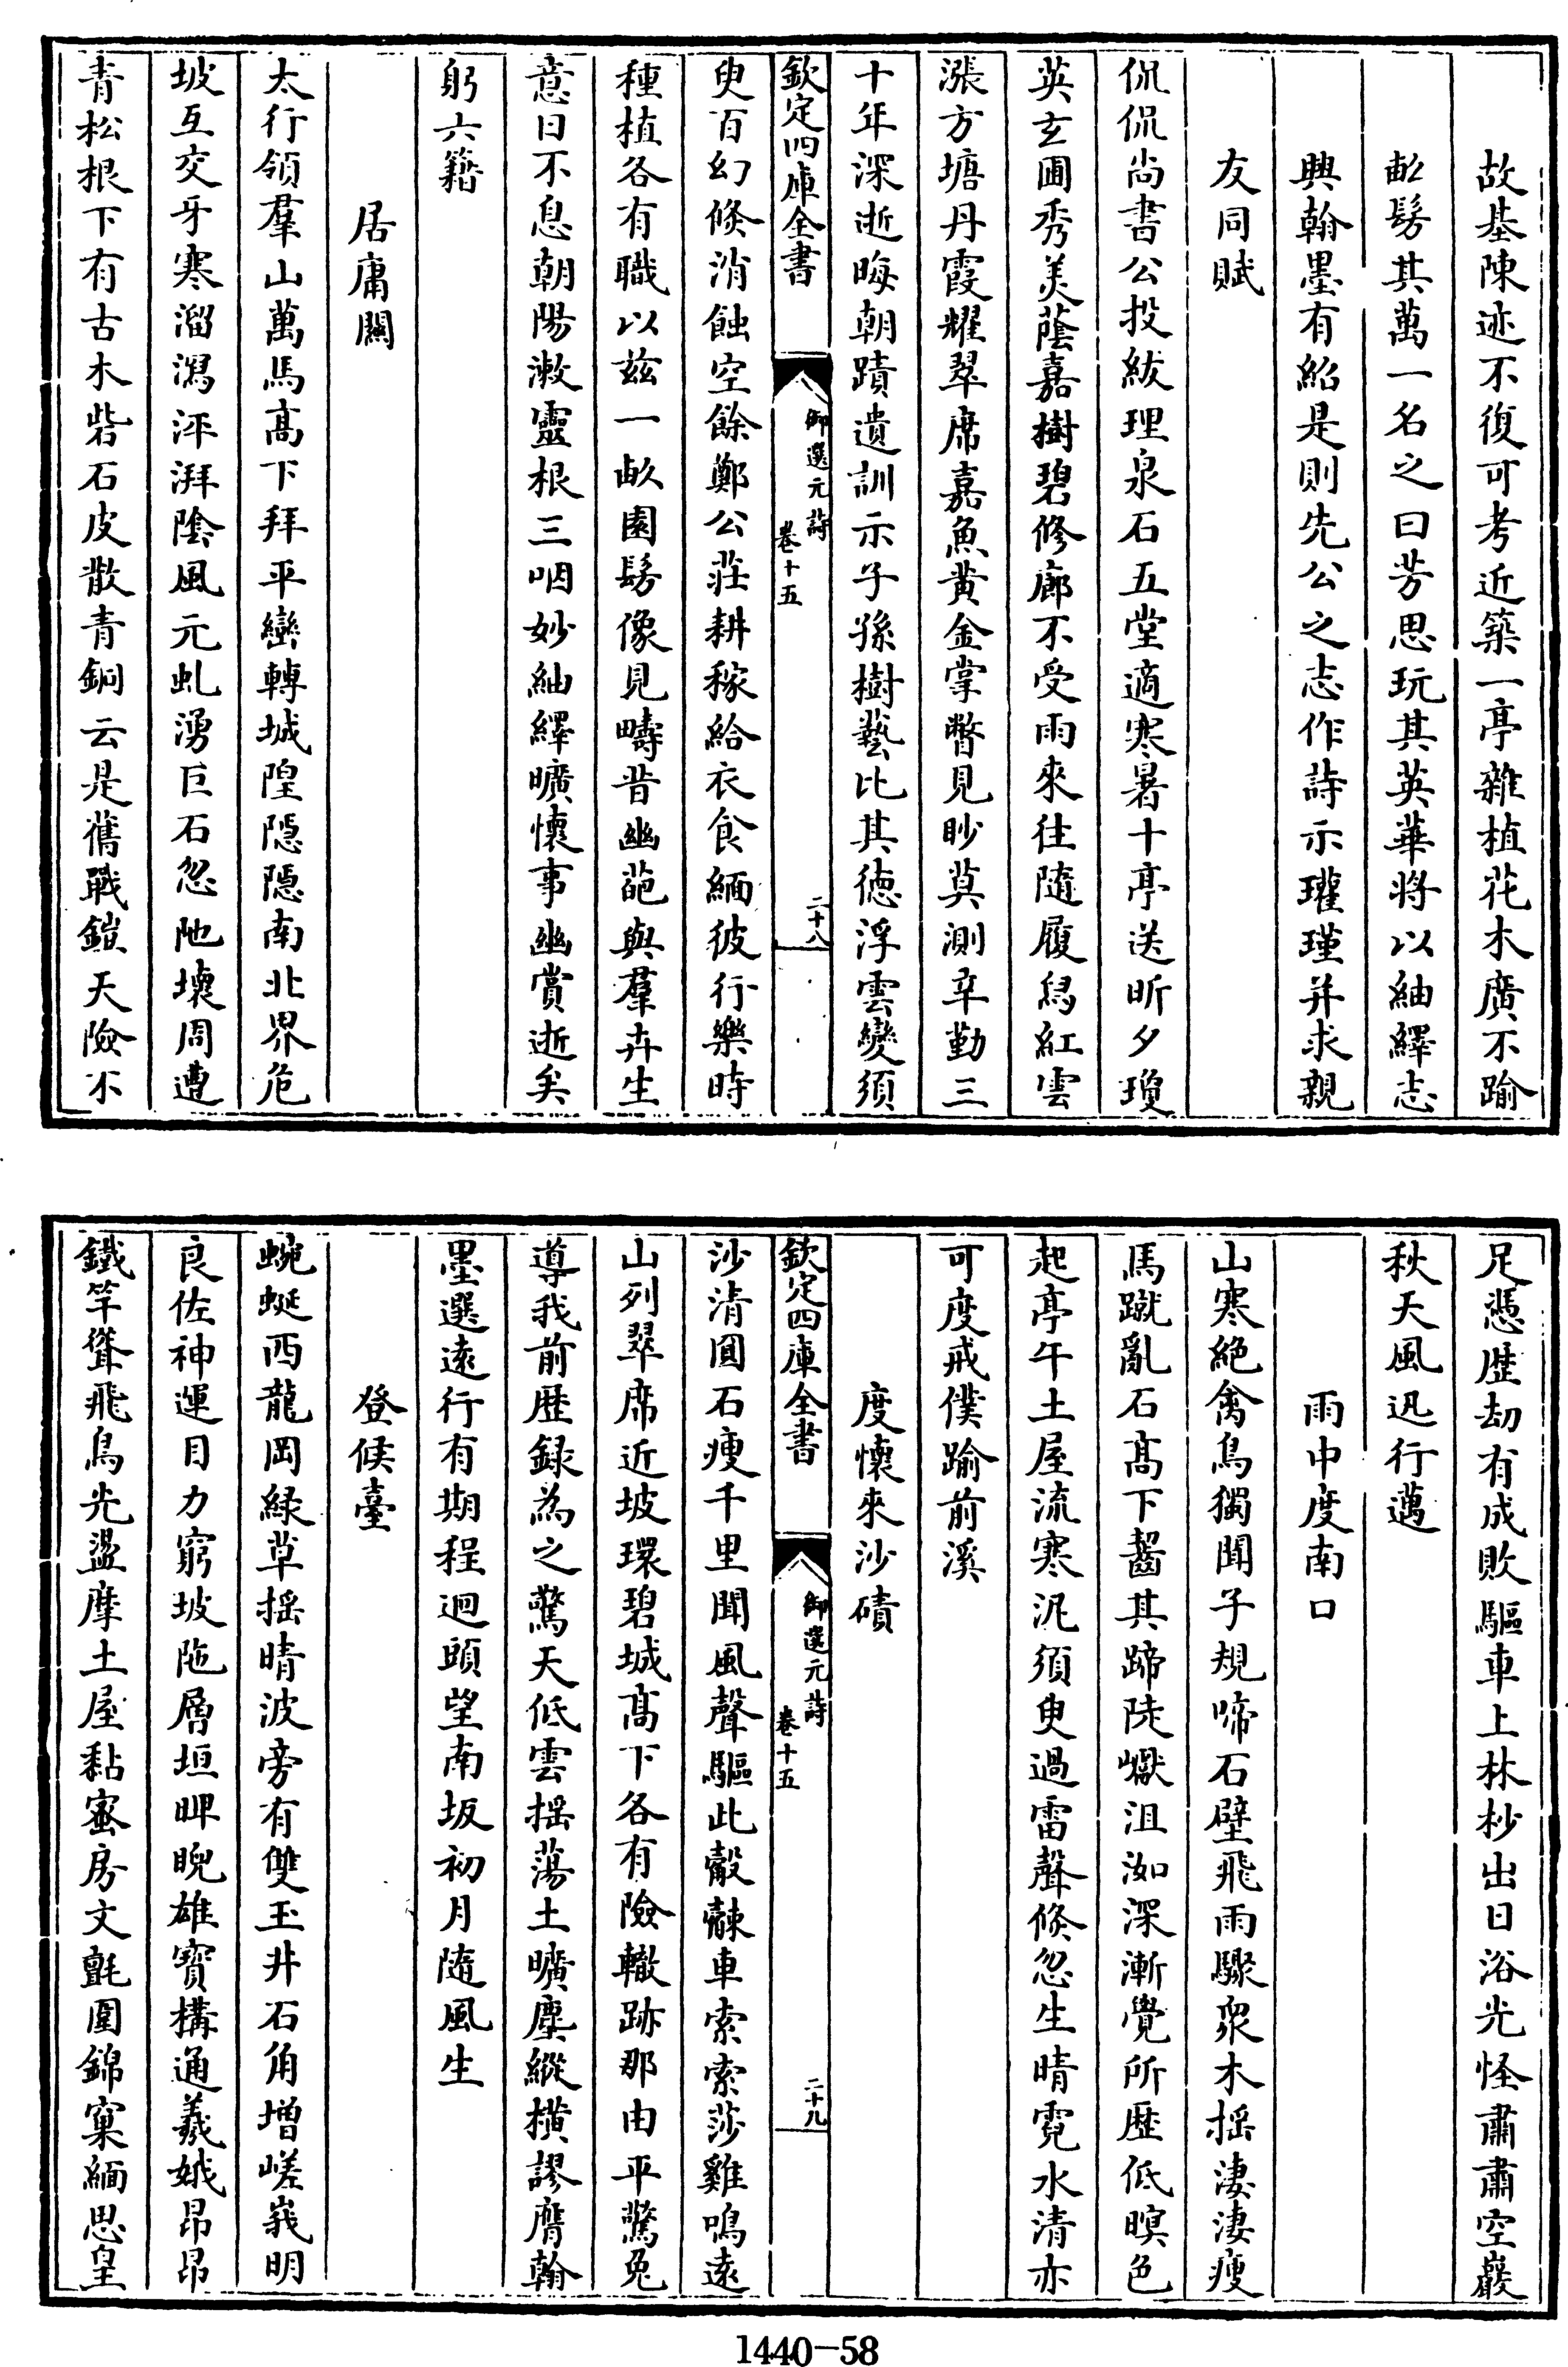 故基陳迹不復可考近築一亭雜植花木廣不踰
畝髣其萬一名之曰芳思玩其英華將以紬繹志
興翰墨有紹是則先公之志作詩示瓘瑾并求親
友同賦
侃侃尚書公投紱理泉石五堂適寒暑十亭送昕夕瓊
英玄圃秀美蔭嘉樹碧修廊不受雨來往隨履舄紅雲
漲方塘丹霞耀翠席嘉魚黄金掌瞥見眇莫測辛勤三
十年深逝晦朝蹟遺訓示子孫樹藝比其德浮雲變須
欽定四庫全書
御選元詩
卷十五
二十八
臾百幻倐消蝕空餘鄭公莊耕稼給衣食緬彼行樂時
種植各有職以兹一畝園髣像見疇昔幽葩與羣卉生
意日不息朝陽漱靈根三咽妙紬繹曠懷事幽賞逝矣
躬六籍
居庸關
太行領羣山萬馬高下拜平巒轉城隍隱隱南北界危
坡互交牙寒溜瀉泙湃陰風元虬湧巨石忽阤壞周遭
青松根下有古木砦石皮散青銅云是舊戰鎧天險不
足憑歴劫有成敗驅車上林杪出日浴光怪肅肅空巖
秋天風迅行邁
雨中度南口
山寒絶禽鳥獨聞子規啼石壁飛雨驟衆木揺淒淒瘦
馬蹴亂石髙下齧其蹄陡巘沮洳深漸覺所歴低暝色
起亭午土屋流寒泥須臾過雷聲倐忽生晴霓水清亦
可度戒僕踰前溪
度懷來沙磧
欽定四庫全書
御選元詩
卷十五
二十九
沙清圓石瘦千里聞風聲驅此觳觫車索索莎雞鳴遠
山列翠席近坡環碧城髙下各有險轍跡那由平驚兔
導我前歴録為之驚天低雲揺蕩土曠塵縱横謬膺翰
墨選遠行有期程迴頭望南坂初月隨風生
登候臺
蜿蜒西龍岡緑草揺晴波旁有雙玉井石角増嵯峩明
良佐神運目力窮坡陁層垣睥睨雄寳構通羲娥昂昂
鐵竿聳飛鳥光盪摩土屋黏蜜房文氈圍錦窠緬思皇
1440-58